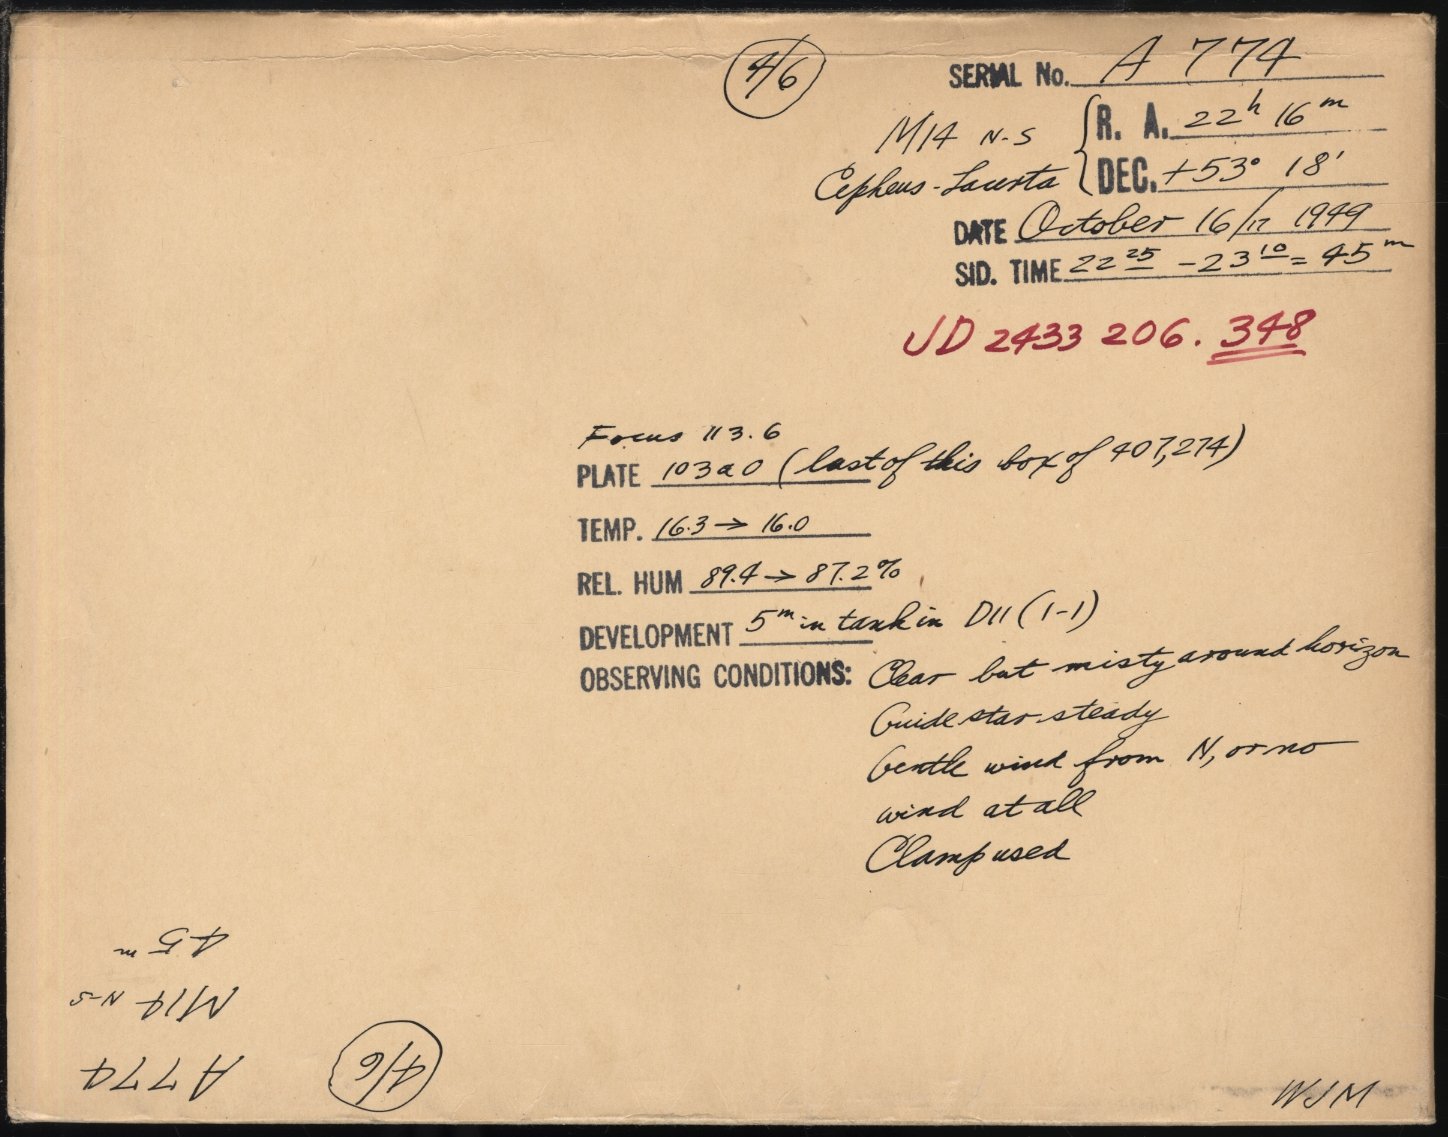 4/6
SERIAL No. A 774
M14 N-S { R. A. 22h 16m
Cepheus-Lacerta DEC. +53° 18'
DATE October 16/17 1949
SID. TIME 22 25 - 23 10 = 45m
JD 2433 206.348
Focus 113.6
PLATE 103a0 (last of this box of 407,274)
TEMP. 16.3 → 16.0
REL. HUM 89.4 → 87.2%
DEVELOPMENT 5m in tank in D11 (1-1)
OBSERVING CONDITIONS: Clear but misty around horizon
Guide star steady
Gentle wind from N, or no
wind at all
Clamp used
45m
M14 N-S
A774
4/6
WJM